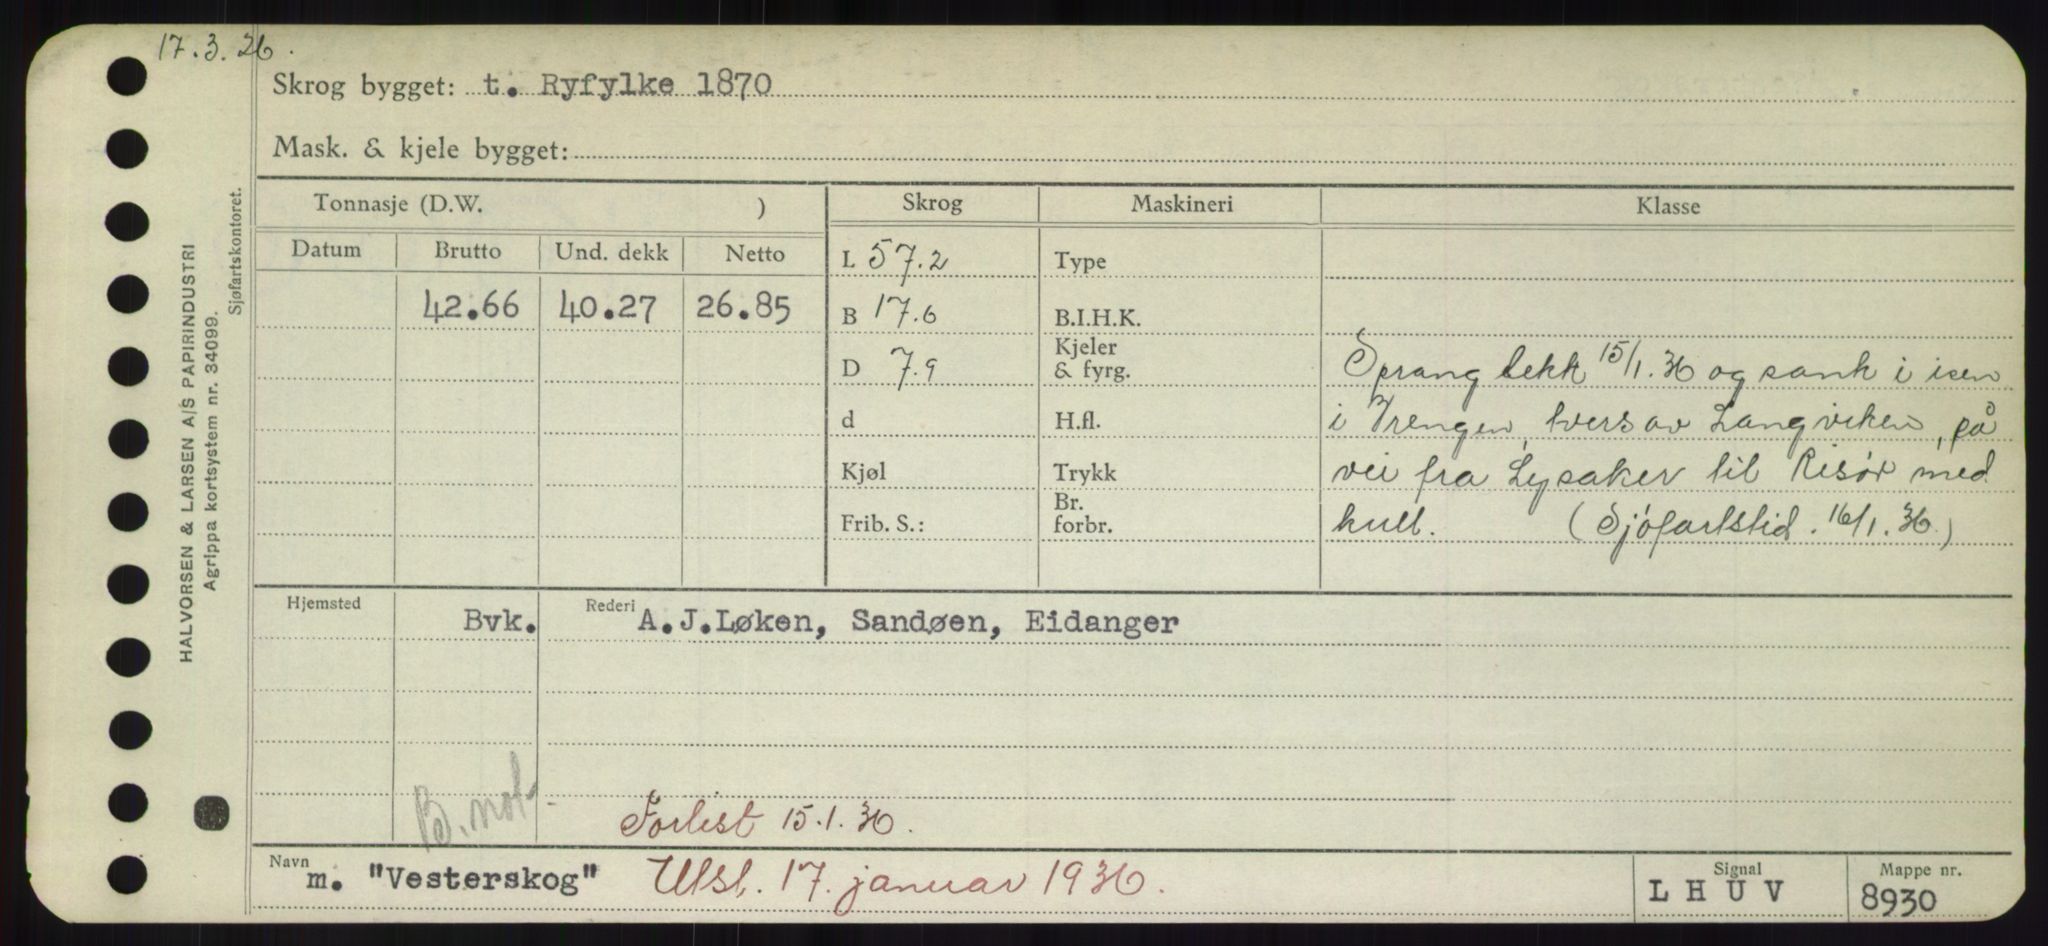 17.3.26.
Skrog bygget: t. Ryfylke 1870
Mask. & kjele bygget:
HALVORSEN & LARSEN A/S PAPIRINDUSTRI
Agrippa kortsystem nr. 34099.
Sjøfartskontoret.
Tonnasje (D.W. )
Skrog
Maskineri
Klasse
Datum Brutto Und. dekk Netto
42.66 40.27 26.85
L 57.2
B 17.6
D 7.9
d
Kjøl
Frib. S.:
Type
B.I.H.K.
Kjeler
& fyrg.
H.fl.
Trykk
Br.
forbr.
Sprang lekk 15/1.36 og sank i isen
i Vrengen, tvers av Langviken, på
vei fra Lysaker til Risør med
kull. (Sjøfartstid. 16/1.36.)
Hjemsted Bvk. Rederi A.J.Løken, Sandøen, Eidanger
B. not
Forlist 15.1.36.
Navn m. "Vesterskog" Utsl. 17. januar 1936.
Signal L H U V
Mappe nr. 8930